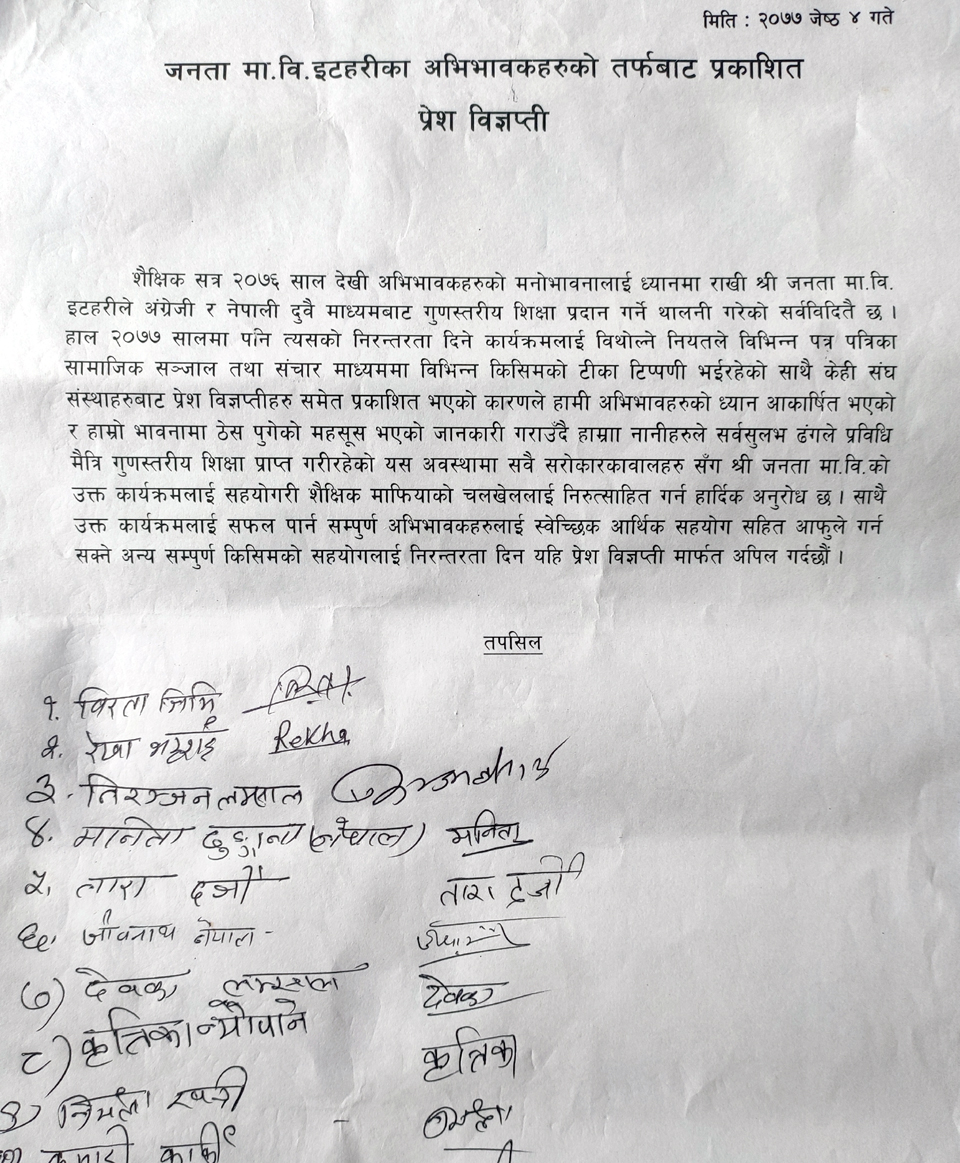 मिति : २०७७ जेष्ठ ४ गते
जनता मा.वि.इटहरीका अभिभावकहरुको तर्फबाट प्रकाशित
प्रेश विज्ञप्ती
शैक्षिक सत्र २०७६ साल देखी अभिभावकहरुको मनोभावनालाई ध्यानमा राखी श्री जनता मा.वि.
इटहरीले अंग्रेजी र नेपाली दुवै माध्यमबाट गुणस्तरीय शिक्षा प्रदान गर्ने थालनी गरेको सर्वविदितै छ ।
हाल २०७७ सालमा पनि त्यसको निरन्तरता दिने कार्यक्रमलाई विथोल्ने नियतले विभिन्न पत्र पत्रिका
सामाजिक सञ्जाल तथा संचार माध्यममा विभिन्न किसिमको टीका टिप्पणी भईरहेको साथै केही संघ
संस्थाहरुबाट प्रेश विज्ञप्तीहरु समेत प्रकाशित भएको कारणले हामी अभिभावहरुको ध्यान आकार्षित भएको
र हाम्रो भावनामा ठेस पुगेको महसूस भएको जानकारी गराउँदै हाम्राा नानीहरुले सर्वसुलभ ढंगले प्रविधि
मैत्रि गुणस्तरीय शिक्षा प्राप्त गरीरहेको यस अवस्थामा सवै सरोकारकावालहरु सँग श्री जनता मा.वि.को
उक्त कार्यक्रमलाई सहयोगरी शैक्षिक माफियाको चलखेललाई निरुत्साहित गर्न हार्दिक अनुरोध छ । साथै
उक्त कार्यक्रमलाई सफल पार्न सम्पुर्ण अभिभावकहरुलाई स्वेच्छिक आर्थिक सहयोग सहित आफुले गर्न
सक्ने अन्य सम्पुर्ण किसिमको सहयोगलाई निरन्तरता दिन यहि प्रेश विज्ञप्ती मार्फत अपिल गर्दछौं ।
तपसिल
१.
२. रेखा भट्टराई Rekha
३. निरञ्जन लम्साल
४. मानिता ढुङ्गाना (नेपाल) मनिता
५. तारा दर्जी तारा दर्जी
६. जीवनाथ नेपाल -
७) देवका लम्साल देवका
८) कृत्तिका न्यौपाने कृत्तिका
९) निर्मला खत्री
कुमारी कार्की